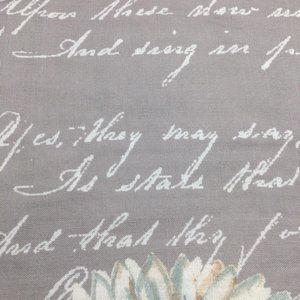 Upon these now
And sing in
Yes, they may say,
As stars that
And that thy